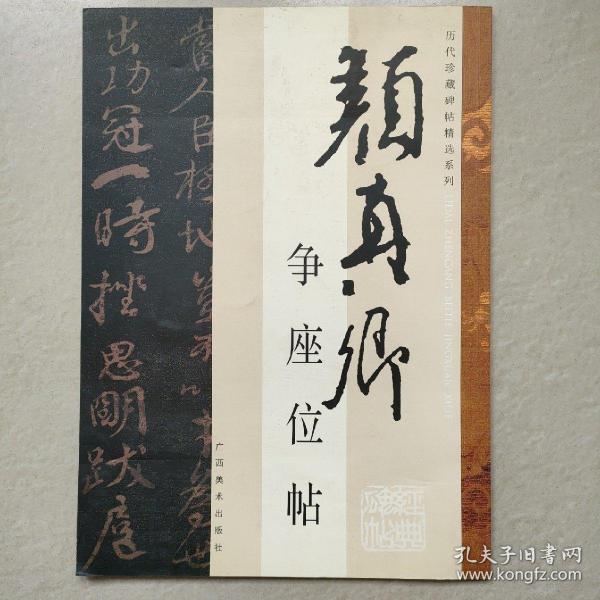 历代珍藏碑帖精选系列
LIDAI ZHENCANG BEITIE JINGXUAN XILIE
颜真卿
争座位帖
广西美术出版社
出功冠一时挫思明跋扈
孔夫子旧书网
www.kongfz.com